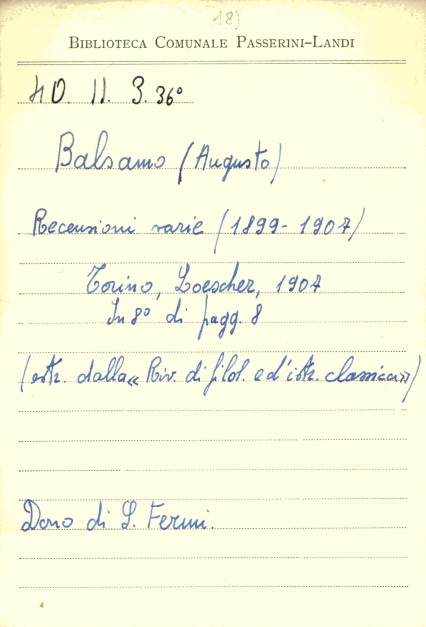 18)
BIBLIOTECA COMUNALE PASSERINI-LANDI
4O. II. 3. 36°
Balsamo (Augusto)
Recensioni varie (1899-1907)
Torino, Loescher, 1907
In 8° di pagg. 8
(estr. dalla « Riv. di filol. e d'istr. classica »)
Dono di S. Fermi.